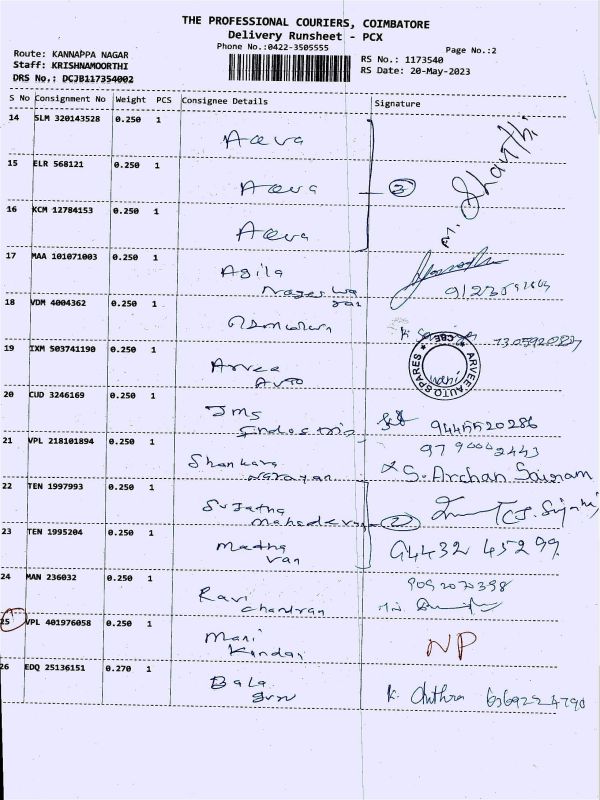 THE PROFESSIONAL COURIERS, COIMBATORE
Delivery Runsheet - PCX
Phone No.:0422-3505555
Page No.:2
Route: KANNAPPA NAGAR
Staff: KRISHNAMOORTHI
DRS No.: DCJB117354002
RS No.: 1173540
RS Date: 20-May-2023
S No Consignment No Weight PCS Consignee Details Signature
14 SLM 320143528 0.250 1
15 ELR 568121 0.250 1
3
16 KCM 12784153 0.250 1
17 MAA 101071003 0.250 1 Agila
18 VDM 4004362 0.250 1
19 IXM 503741190 0.250 1 Arvee
Auto
ARVEE AUTO SPARES ★ CBE ★
20 CUD 3246169 0.250 1 Jms
9445520286
21 VPL 218101894 0.250 1 Shankara
Narayan
S. Archan Sainam
22 TEN 1997993 0.250 1 Sujatha
2
23 TEN 1995204 0.250 1 Madha
van
94432 45299
24 MAN 236032 0.250 1 Ravi
chandran
9092070398
25 VPL 401976058 0.250 1 Mani
Kandan
NP
26 EDQ 25136151 0.270 1 Bala
K. Chithra